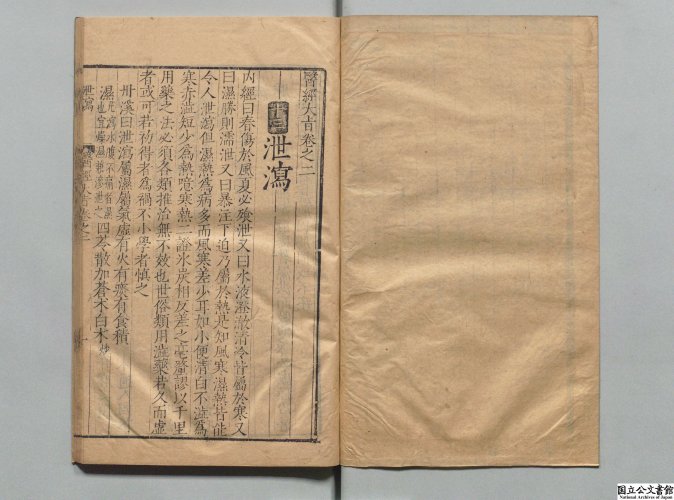 醫經大旨卷之二
十三 泄瀉
內經曰春傷於風夏必飱泄又曰水液澄澈清冷皆屬於寒又
曰濕勝則濡泄又曰暴注下迫乃屬於熱是知風寒濕熱皆能
令人泄瀉但濕熱為病多而風寒差少耳如小便清白不澁為
寒赤澁短少為熱噫寒熱二證氷炭相反差之毫釐謬以千里
用藥之法必須各類推治無不效也世俗類用澁藥若久而虛
者或可若初得者為禍不小學者慎之
丹溪曰泄瀉屬濕屬氣虛有火有痰有食積
濕 四苓散加蒼朮白朮
泄瀉
國立公文書館
National Archives of Japan